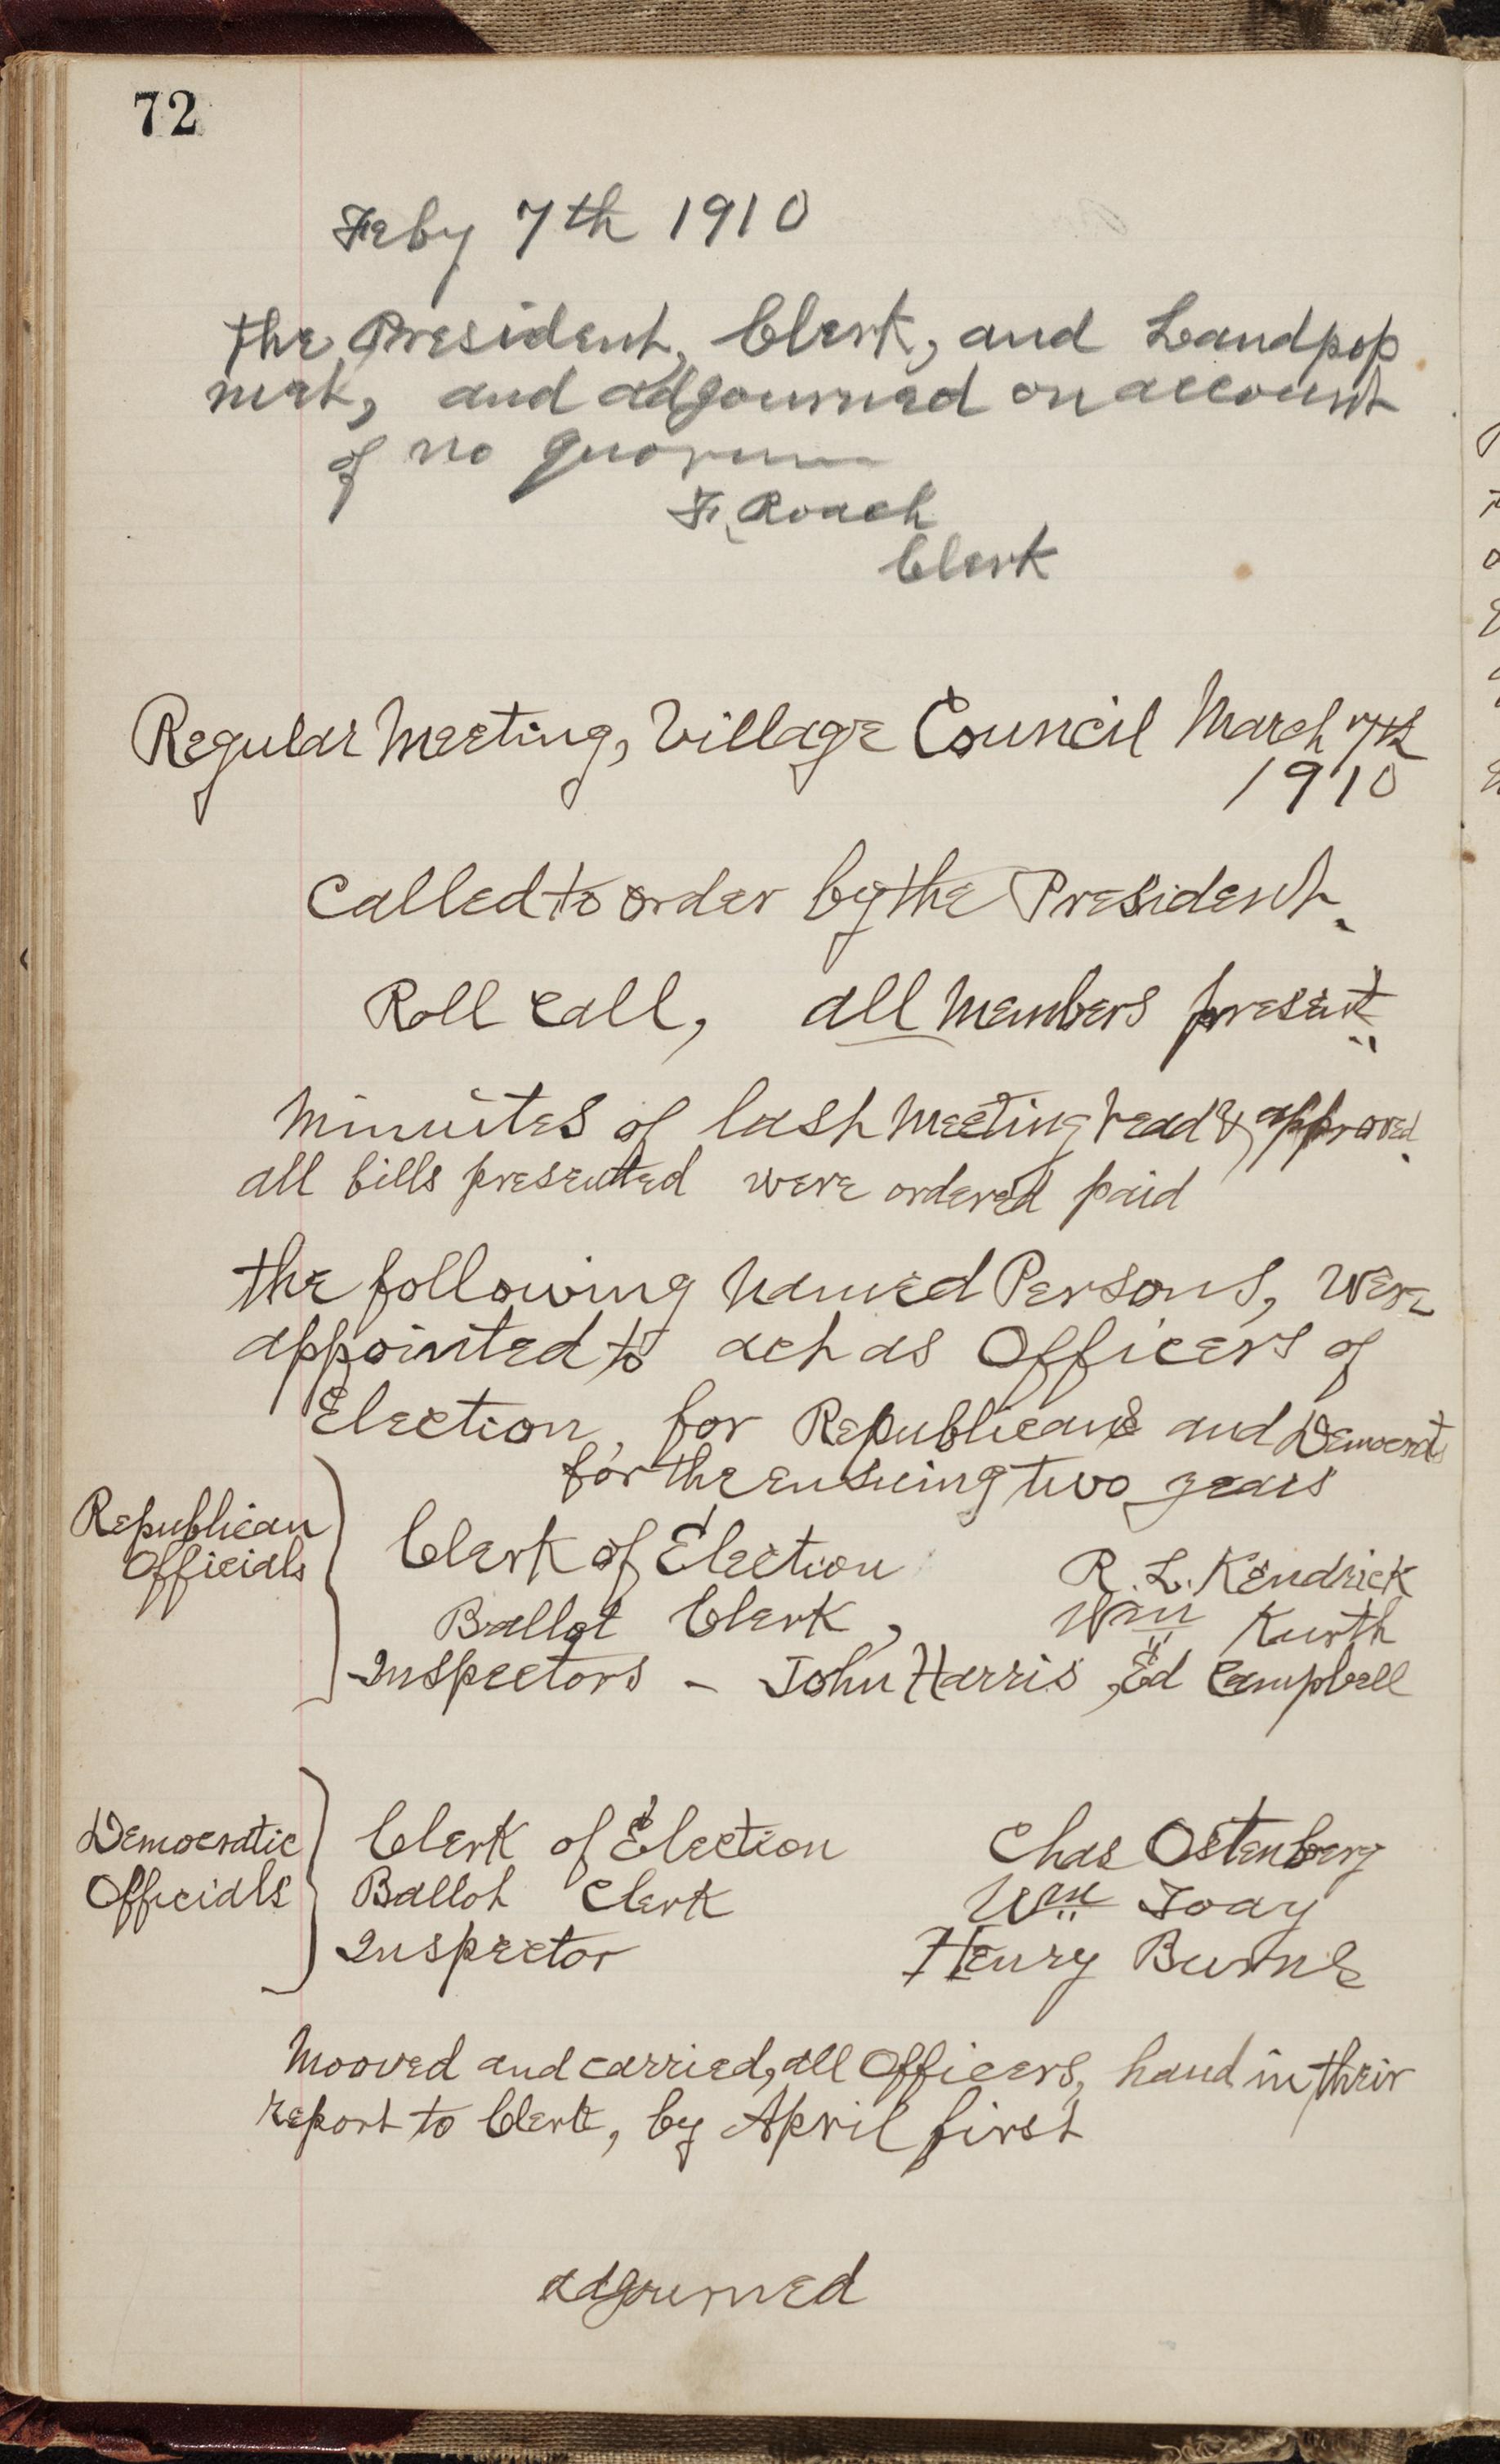 72
Feby 7th 1910
the President, Clerk, and Landpop
met, and adgourned on account
of no quorum
F. Roach
Clerk
Regular Meeting, Village Council March 7th
1910
Called to order by the President.
Roll call, all Members present
Minuites of last Meeting read & approved.
all bills presented were ordered paid
the following named Persons, were
appointed to act as Officers of
Election, for Republicans and Democrats
for the ensueing two years
Republican
Officials
Clerk of Election R. L. Kendrick
Ballot Clerk, Wm Kurth
Inspectors - John Harris, Ed Campbell
Democratic
Officials
Clerk of Election Chas Ostenberg
Ballot Clerk Wm Toay
Inspector Henry Burns
Mooved and carried, all Officers, hand in their
report to Clerk, by April first
adgourned